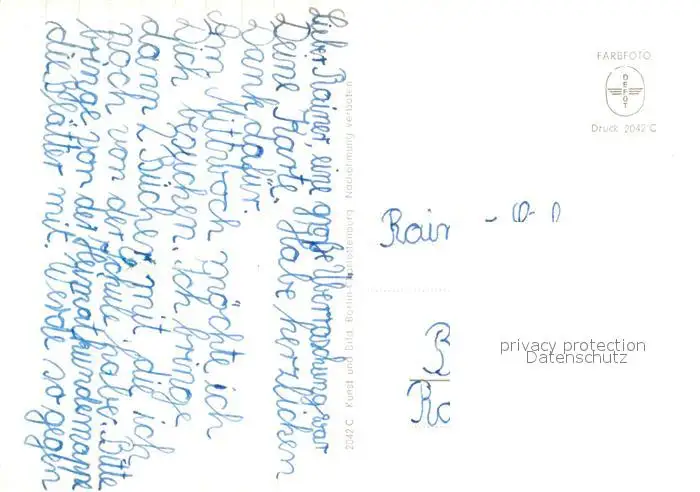 Lieber Rainer, eine große Überraschung war
Deine Karte. Habe herzlichen
Dank dafür.
Am Mittwoch möchte ich
Dich besuchen. Ich bringe
dann 2 Bücher mit, die ich
noch von der Schule habe. Bitte
bringe von der Heimatkundemappe
die Blätter mit. Werde so gegen
2042 C Kunst und Bild, Berlin-Charlottenburg Nachahmung verboten
FARBFOTO
DEFOT
Druck 2042 C
Rain
B
Ra
privacy protection
Datenschutz